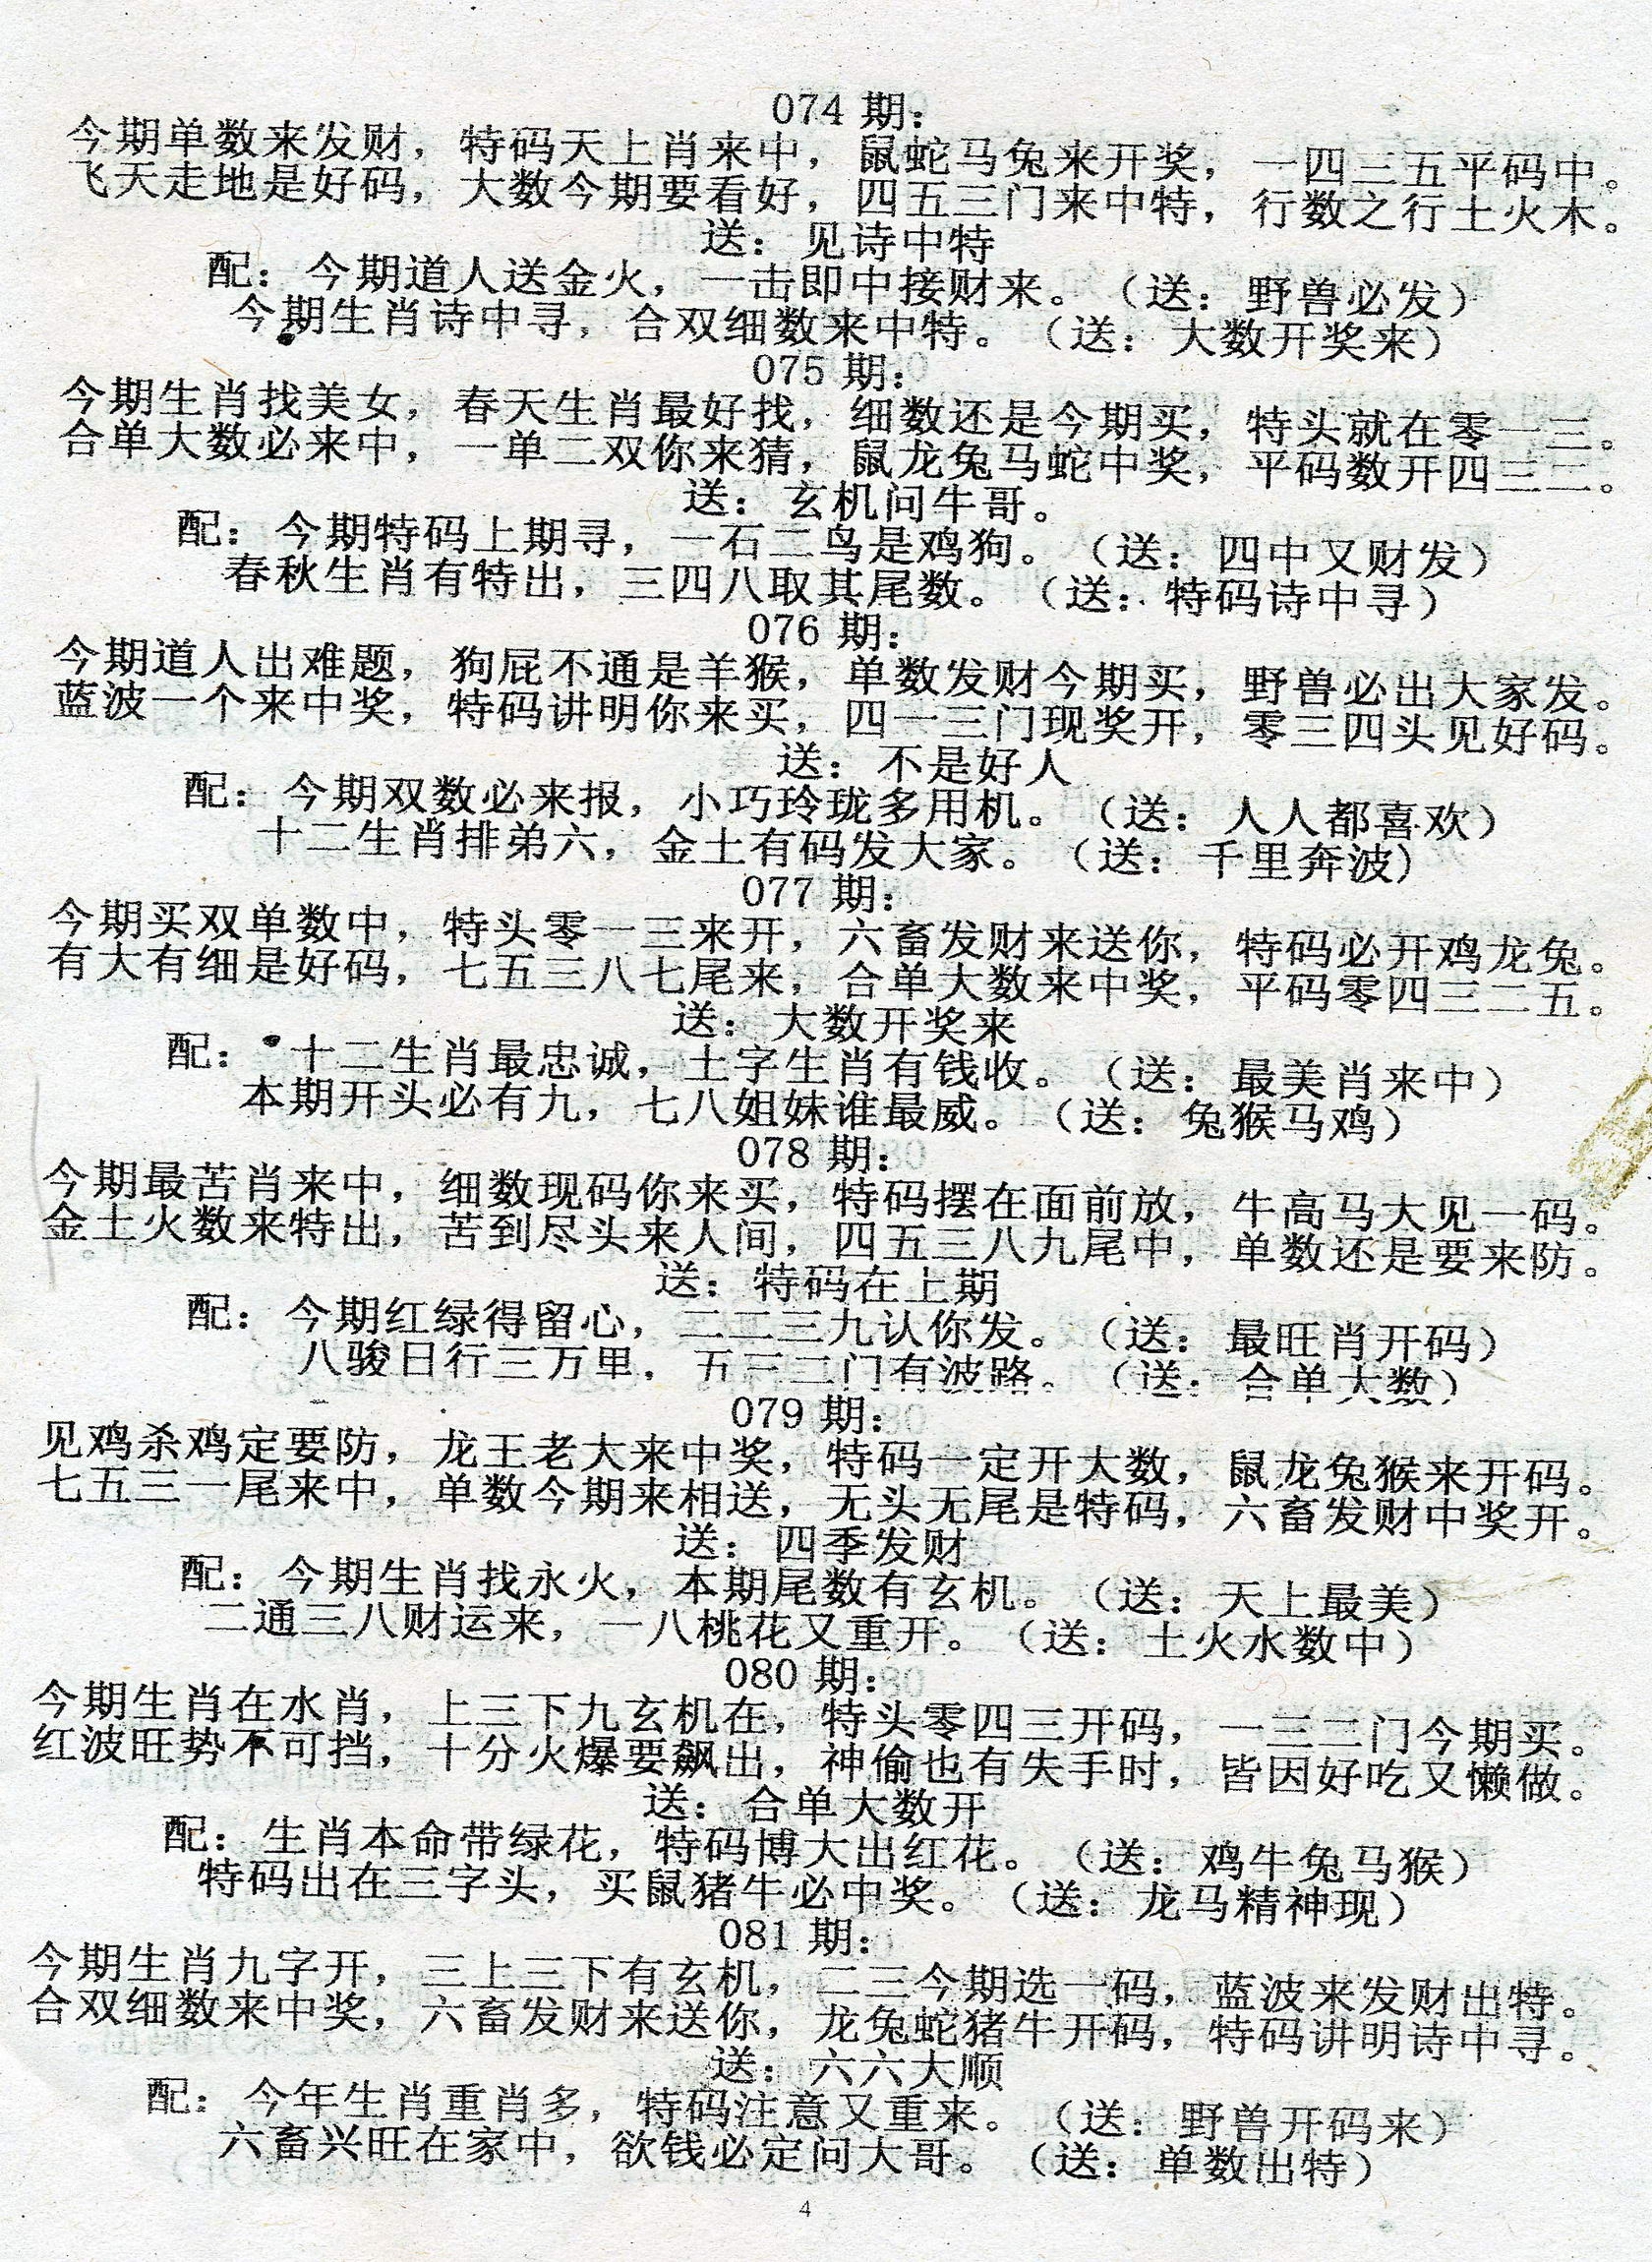 074 期:
今期单数来发财，特码天上肖来中，鼠蛇马兔来开奖，一四三五平码中。
飞天走地是好码，大数今期要看好，四五三门来中特，行数之行土火木。
送：见诗中特
配：今期道人送金火，一击即中接财来。（送：野兽必发）
今期生肖诗中寻，合双细数来中特。（送：大数开奖来）
075 期:
今期生肖找美女，春天生肖最好找，细数还是今期买，特头就在零一三。
合单大数必来中，一单二双你来猜，鼠龙兔马蛇中奖，平码数开四三二。
送：玄机问牛哥。
配：今期特码上期寻，一石二鸟是鸡狗。（送：四中又财发）
春秋生肖有特出，三四八取其尾数。（送：特码诗中寻）
076 期:
今期道人出难题，狗屁不通是羊猴，单数发财今期买，野兽必出大家发。
蓝波一个来中奖，特码讲明你来买，四一三门现奖开，零三四头见好码。
送：不是好人
配：今期双数必来报，小巧玲珑多用机。（送：人人都喜欢）
十二生肖排弟六，金土有码发大家。（送：千里奔波）
077 期:
今期买双单数中，特头零一三来开，六畜发财来送你，特码必开鸡龙兔。
有大有细是好码，七五三八七尾来，合单大数来中奖，平码零四三二五。
送：大数开奖来
配：十二生肖最忠诚，土字生肖有钱收。（送：最美肖来中）
本期开头必有九，七八姐妹谁最威。（送：兔猴马鸡）
078 期:
今期最苦肖来中，细数现码你来买，特码摆在面前放，牛高马大见一码。
金土火数来特出，苦到尽头来人间，四五三八九尾中，单数还是要来防。
送：特码在上期
配：今期红绿得留心，二二三九认你发。（送：最旺肖开码）
八骏日行三万里，五三二门有波路。（送：合单大数）
079 期:
见鸡杀鸡定要防，龙王老大来中奖，特码一定开大数，鼠龙兔猴来开码。
七五三一尾来中，单数今期来相送，无头无尾是特码，六畜发财中奖开。
送：四季发财
配：今期生肖找永火，本期尾数有玄机。（送：天上最美）
二通三八财运来，一八桃花又重开。（送：土火水数中）
080 期:
今期生肖在水肖，上三下九玄机在，特头零四三开码，一三二门今期买。
红波旺势不可挡，十分火爆要飙出，神偷也有失手时，皆因好吃又懒做。
送：合单大数开
配：生肖本命带绿花，特码博大出红花。（送：鸡牛兔马猴）
特码出在三字头，买鼠猪牛必中奖。（送：龙马精神现）
081 期:
今期生肖九字开，三上三下有玄机，二三今期选一码，蓝波来发财出特。
合双细数来中奖，六畜发财来送你，龙兔蛇猪牛开码，特码讲明诗中寻。
送：六六大顺
配：今年生肖重肖多，特码注意又重来。（送：野兽开码来）
六畜兴旺在家中，欲钱必定问大哥。（送：单数出特）
4